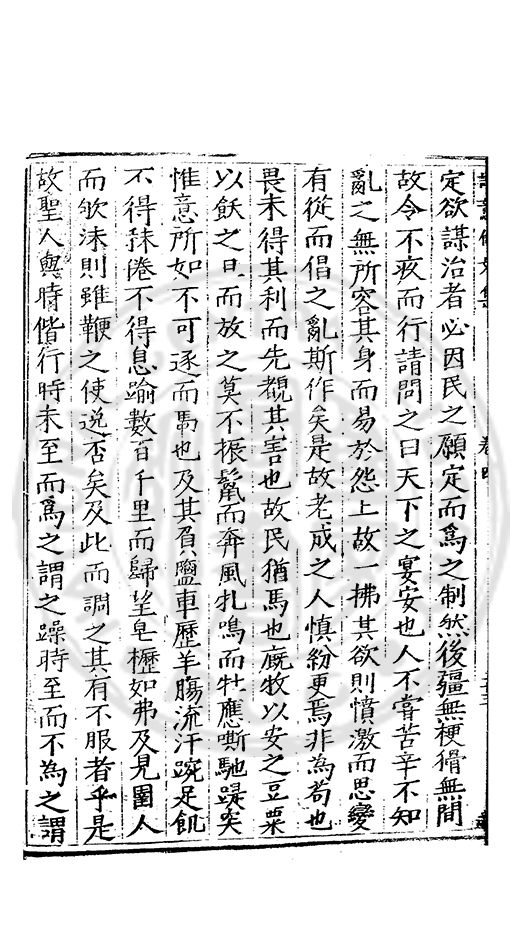 定欲謀治者必因民之願定而爲之制然後疆無梗猾無間
故令不疾而行請問之曰天下之宴安也人不嘗苦辛不知
亂之無所容其身而易於怨上故一拂其欲則憤激而思變
有從而倡之亂斯作矣是故老成之人慎紛更焉非為苟也
畏未得其利而先覩其害也故民猶馬也廄牧以安之豆粟
以飫之旦而放之莫不振鬣而奔風牝鳴而牡應嘶馳踶突
惟意所如不可逐而馽也及其負鹽車歷羊腸流汗踠足飢
不得秣倦不得息踰數百千里而歸望皂櫪如弗及見圉人
而㰸沫則雖鞭之使逸否矣及此而調之其有不服者乎是
故聖人與時偕行時未至而爲之謂之躁時至而不為之謂
卷四